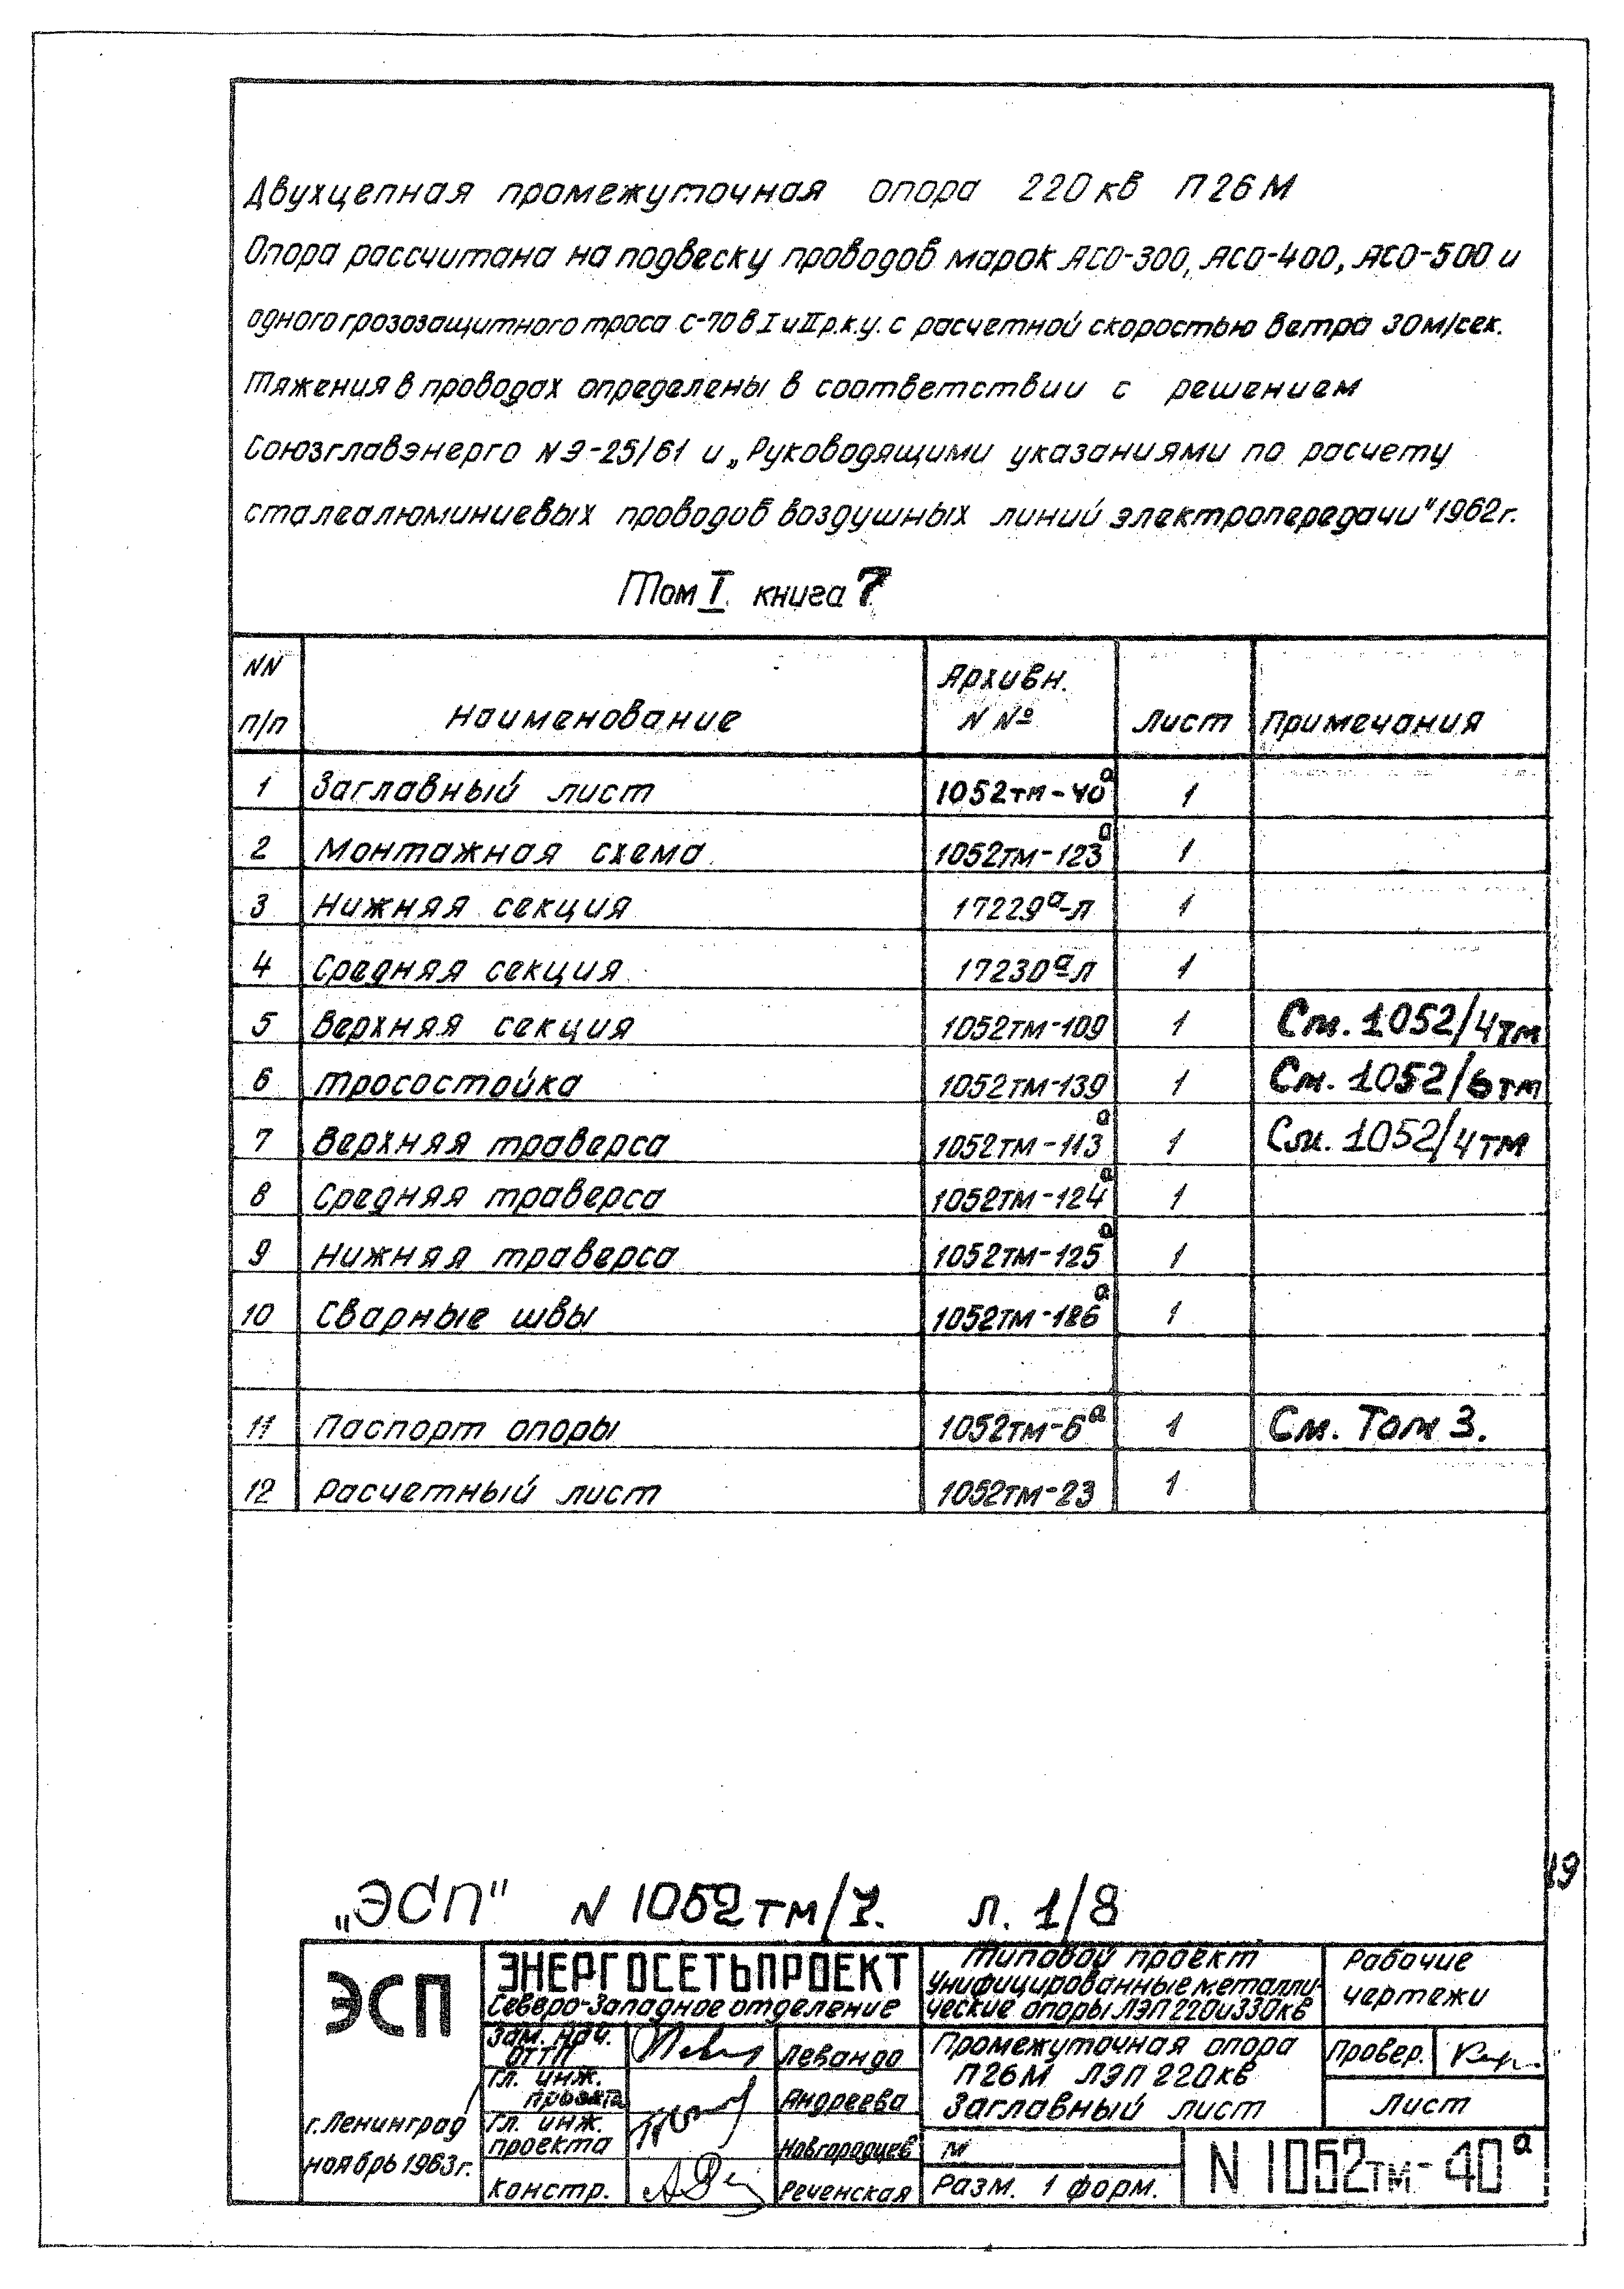 Двухцепная промежуточная опора 220 кв П26М
Опора рассчитана на подвеску проводов марок АСО-300, АСО-400, АСО-500 и
одного грозозащитного троса С-70 в I и II р.к.у. с расчетной скоростью ветра 30 м/сек.
Тяжения в проводах определены в соответствии с решением
Союзглавэнерго N Э-25/61 и „Руководящими указаниями по расчету
сталеалюминиевых проводов воздушных линий электропередачи" 1962 г.
Том I. книга 7
NN п/п Наименование Архивн. N Nº Лист Примечания
1 Заглавный лист 1052тм-40а 1
2 Монтажная схема 1052тм-123а 1
3 Нижняя секция 17229а-л 1
4 Средняя секция 17230а-л 1
5 Верхняя секция 1052тм-109 1 См. 1052/4тм
6 Тросостойка 1052тм-139 1 См. 1052/6тм
7 Верхняя траверса 1052тм-113а 1 См. 1052/4тм
8 Средняя траверса 1052тм-124а 1
9 Нижняя траверса 1052тм-125а 1
10 Сварные швы 1052тм-126а 1
11 Паспорт опоры 1052тм-6а 1 См. Том 3.
12 Расчетный лист 1052тм-23 1
19
„ЭСП" N 1052тм/7. л. 1/8
ЭСП
г. Ленинград
ноябрь 1963 г.
ЭНЕРГОСЕТЬПРОЕКТ
Северо-Западное отделение
Зам. нач. ОТТП Левандо
Гл. инж. проекта Андреева
Гл. инж. проекта Новгородцев
Констр. Реченская
Типовой проект
Унифицированные металли-
ческие опоры ЛЭП 220 и 330 кв
Промежуточная опора
П26М ЛЭП 220 кв
Заглавный лист
М
Разм. 1 форм.
Рабочие
чертежи
Провер.
Лист
N 1052тм-40а